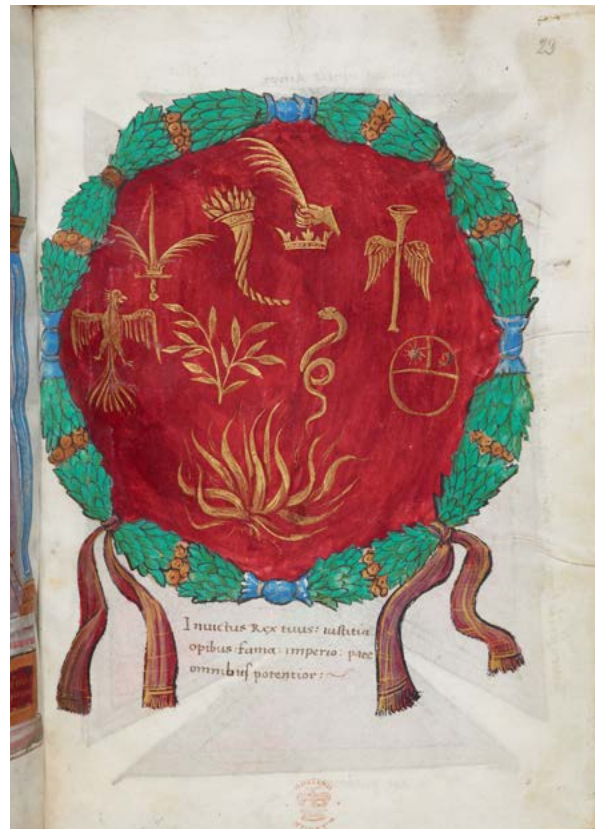 29
Inuictus Rex tuus: iustitia
opibus fama imperio: pace
omnibus potentior: